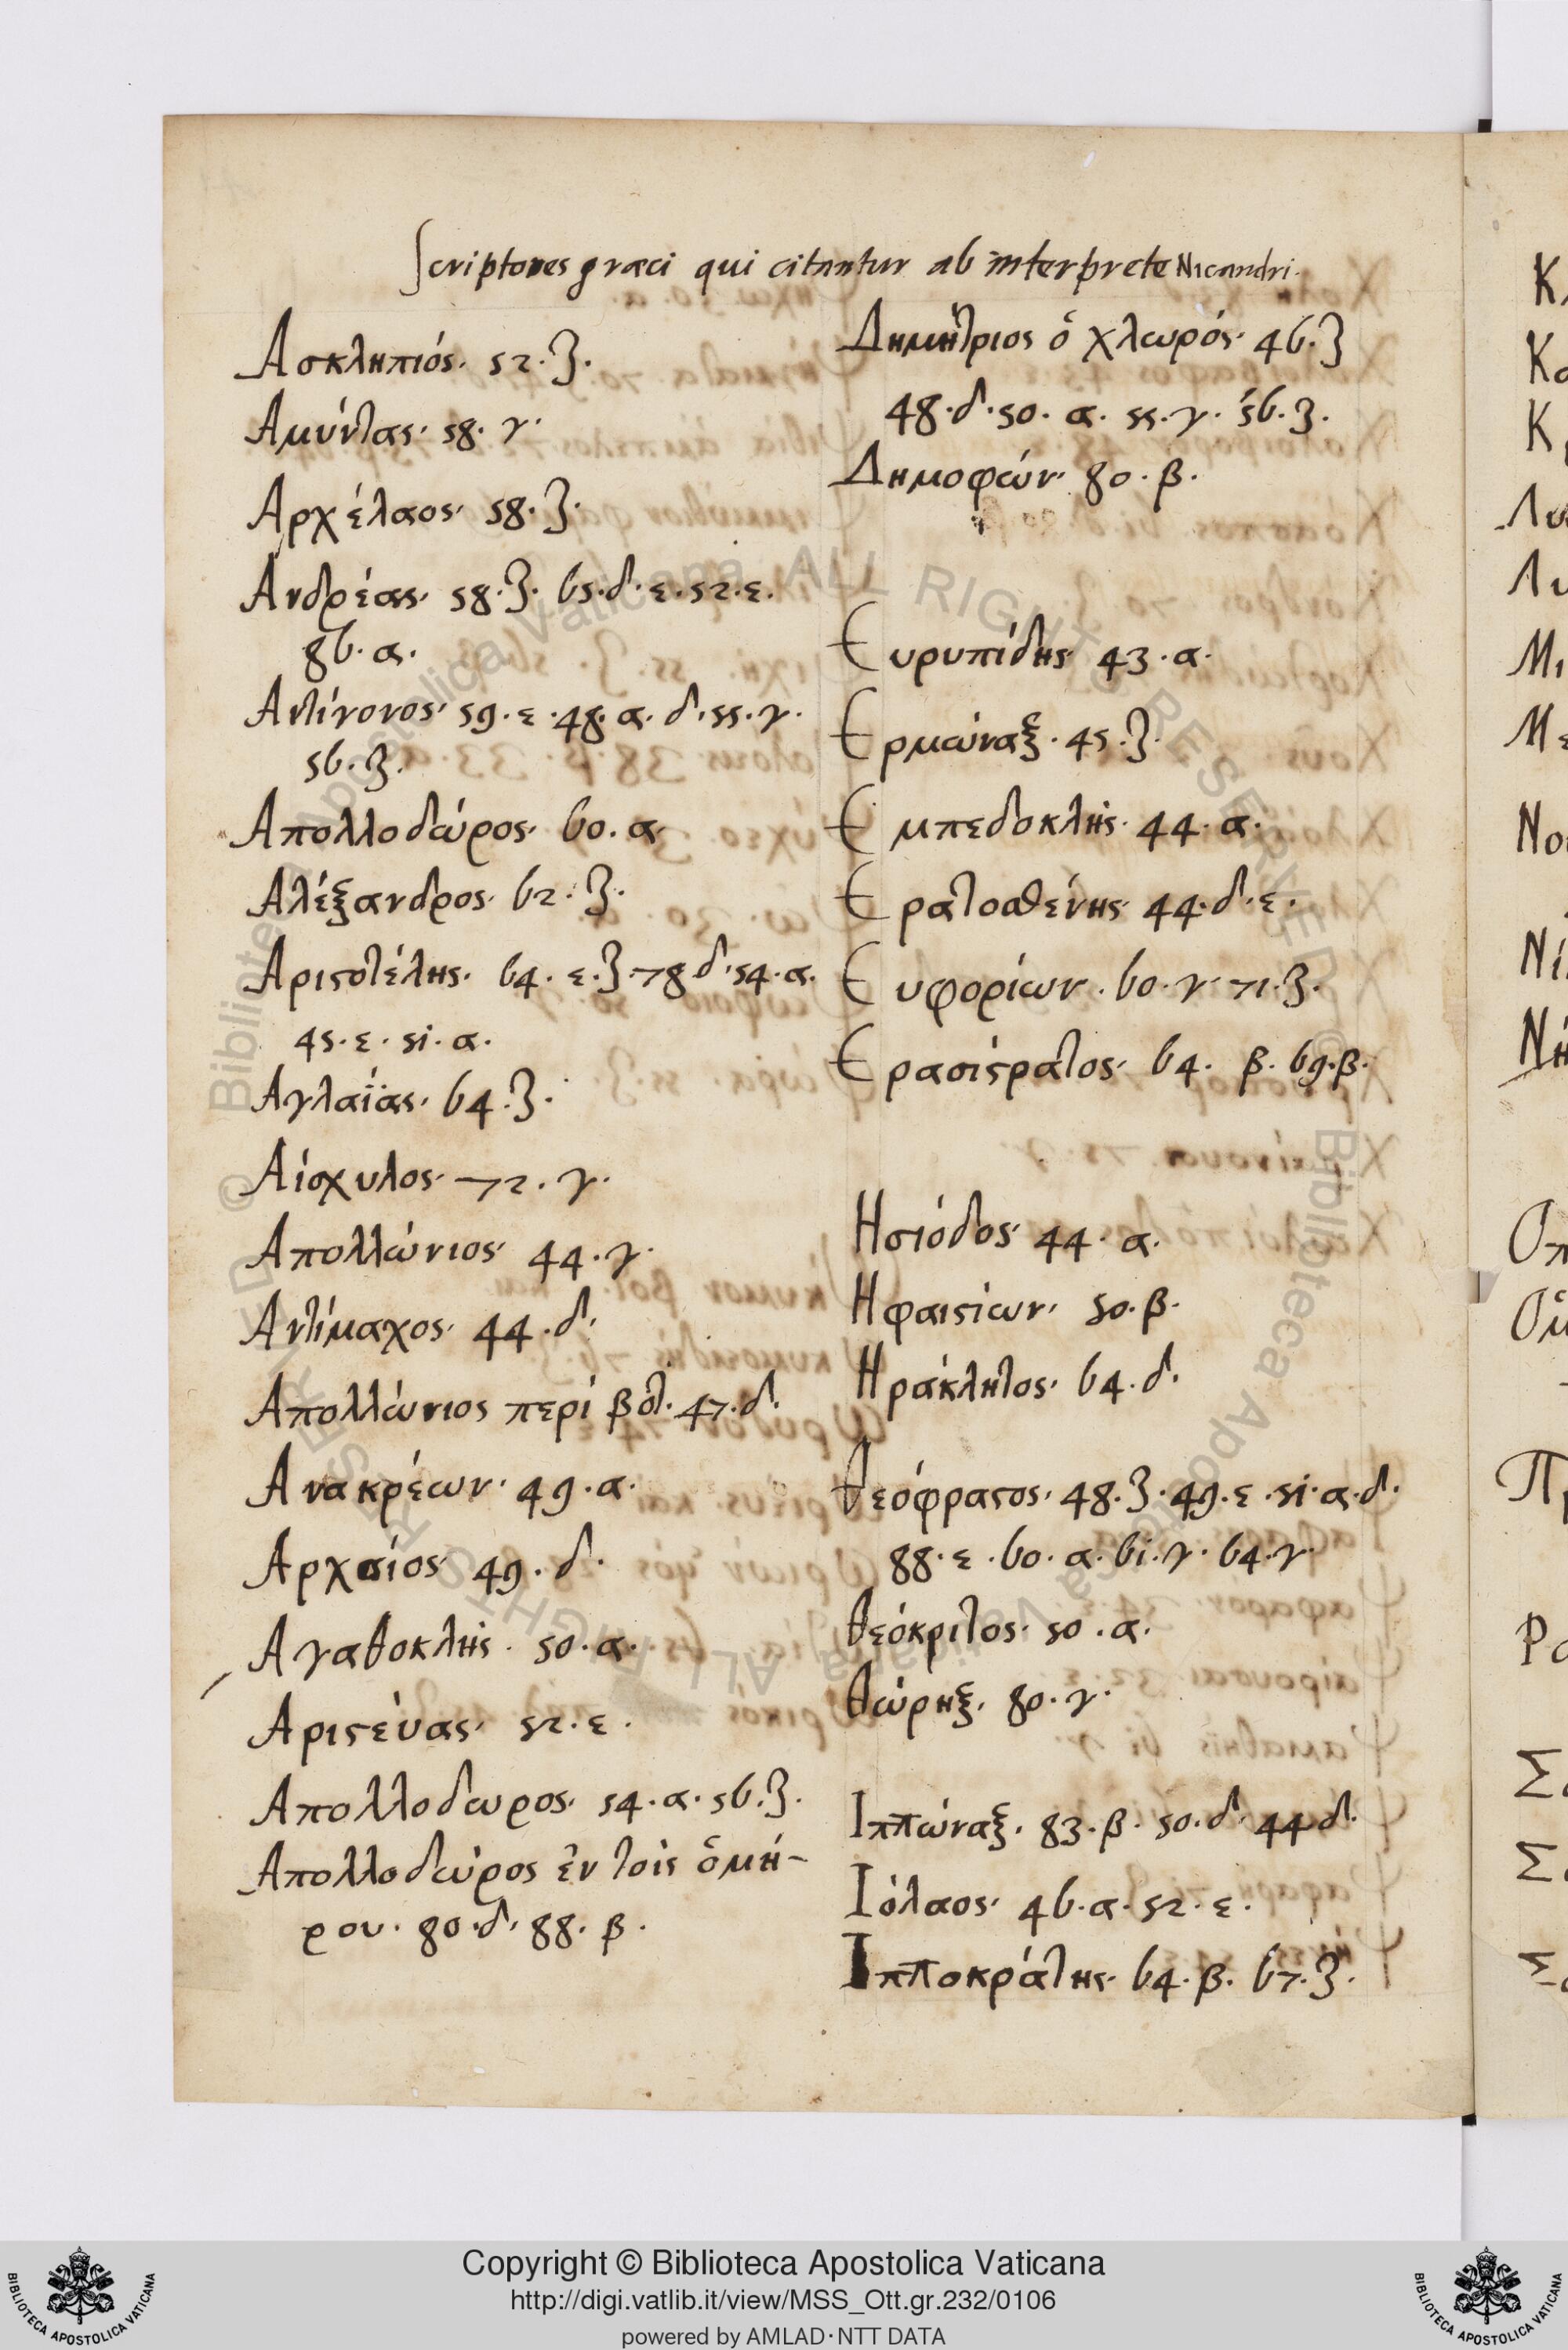 Scriptores græci qui citantur ab interprete Nicandri.
Ασκληπιός. 52. ζ.
Αμύντας. 58. γ.
Αρχέλαος. 58. ζ.
Ανδρέας. 58. ζ. 65. δ. ε. 52. ε.
86. α.
Αντίγονος. 59. ε. 48. α. δ. 55. γ.
56. ζ.
Απολλοδώρος. 60. α.
Αλέξανδρος. 62. ζ.
Αριςοτέλης. 64. ε. ζ. 78 δ. 54. α.
45. ε. 51. α.
Αγλαΐας. 64. ζ.
Αίσχυλος. 72. γ.
Απολλώνιος. 44. γ.
Αντίμαχος. 44. δ.
Απολλώνιος περί βοτ. 47. δ.
Ανακρέων. 49. α.
Αρχσίος. 49. δ.
Αγαθοκλής. 50. α.
Αριςεύας. 52. ε.
Απολλοδωρος. 54. α. 56. ζ.
Απολλοδώρος ἐν τοίς ὁμή-
ρου. 80. δ. 88. β.
Δημήτριος ὁ χλωρός. 46. ζ
48. δ. 50. α. 55. γ. 56. ζ.
Δημοφών. 80. β.
Ευρυπίδης. 43. α.
Ερμώναξ. 45. ζ.
Εμπεδοκλής. 44. α.
Ερατοσθένης. 44. δ. ε.
Ευφορίων. 60. γ. 71. ζ.
Ερασίςρατος. 64. β. 69. β.
Ησιόδος. 44. α.
Ηφαιςίων. 50. β.
Ηράκλητος. 64. δ.
Θεόφραςος. 48. ζ. 49. ε. 51. α. δ.
88. ε. 60. α. 61. γ. 64. γ.
Θεόκριτος. 50. α.
Θώρηξ. 80. γ.
Ιππώναξ. 83. β. 50. δ. 44 δ.
Ιόλαος. 46. α. 52. ε.
Ιπποκράτης. 64. β. 67. ζ.
Copyright © Biblioteca Apostolica Vaticana
http://digi.vatlib.it/view/MSS_Ott.gr.232/0106
powered by AMLAD·NTT DATA